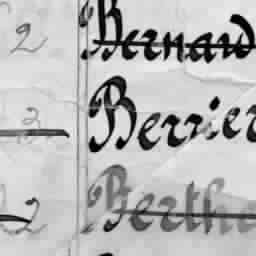 2 Bernard
3 Berrier
2 Bertha